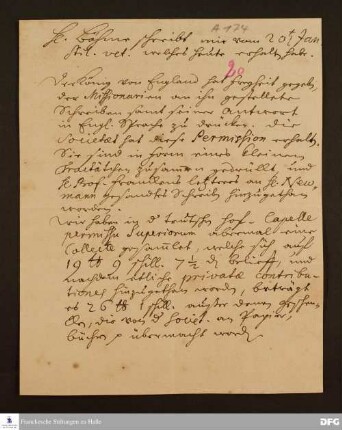 A 174
H. Böhme schreibt mir vom 20t Jan
Stil. vet. welches heute erhalten habe.
Der König von England hat Freyheit gegeben
der Missionarien an ihn gestellete
Schreiben samt seiner Antwort
in Engl. Sprache zu drucken. Die
Societaet hat diese Permission erhalten.
Sie sind in Form eines kleinen
Tractätchen zusammen gedruckt, und
H. Prof. Franckens letzteres an H. New-
mann gesandtes Schreiben hinzugethan
worden.
Wir haben in d teutschen Hof-Capelle
permissu Superiorum abermal eine
Collecte gesamlet, welche sich auf
19 lb 9 schill. 7 1/2 d, belieff, und
nachdem etliche privatae contribu-
tiones hinzugethan worden, beträgt
es 26 lb 1 schill. ausser denen Geschen-
cken, die von d Societ. an Papier,
bücher, p übermacht word.
Franckesche Stiftungen zu Halle
DFG